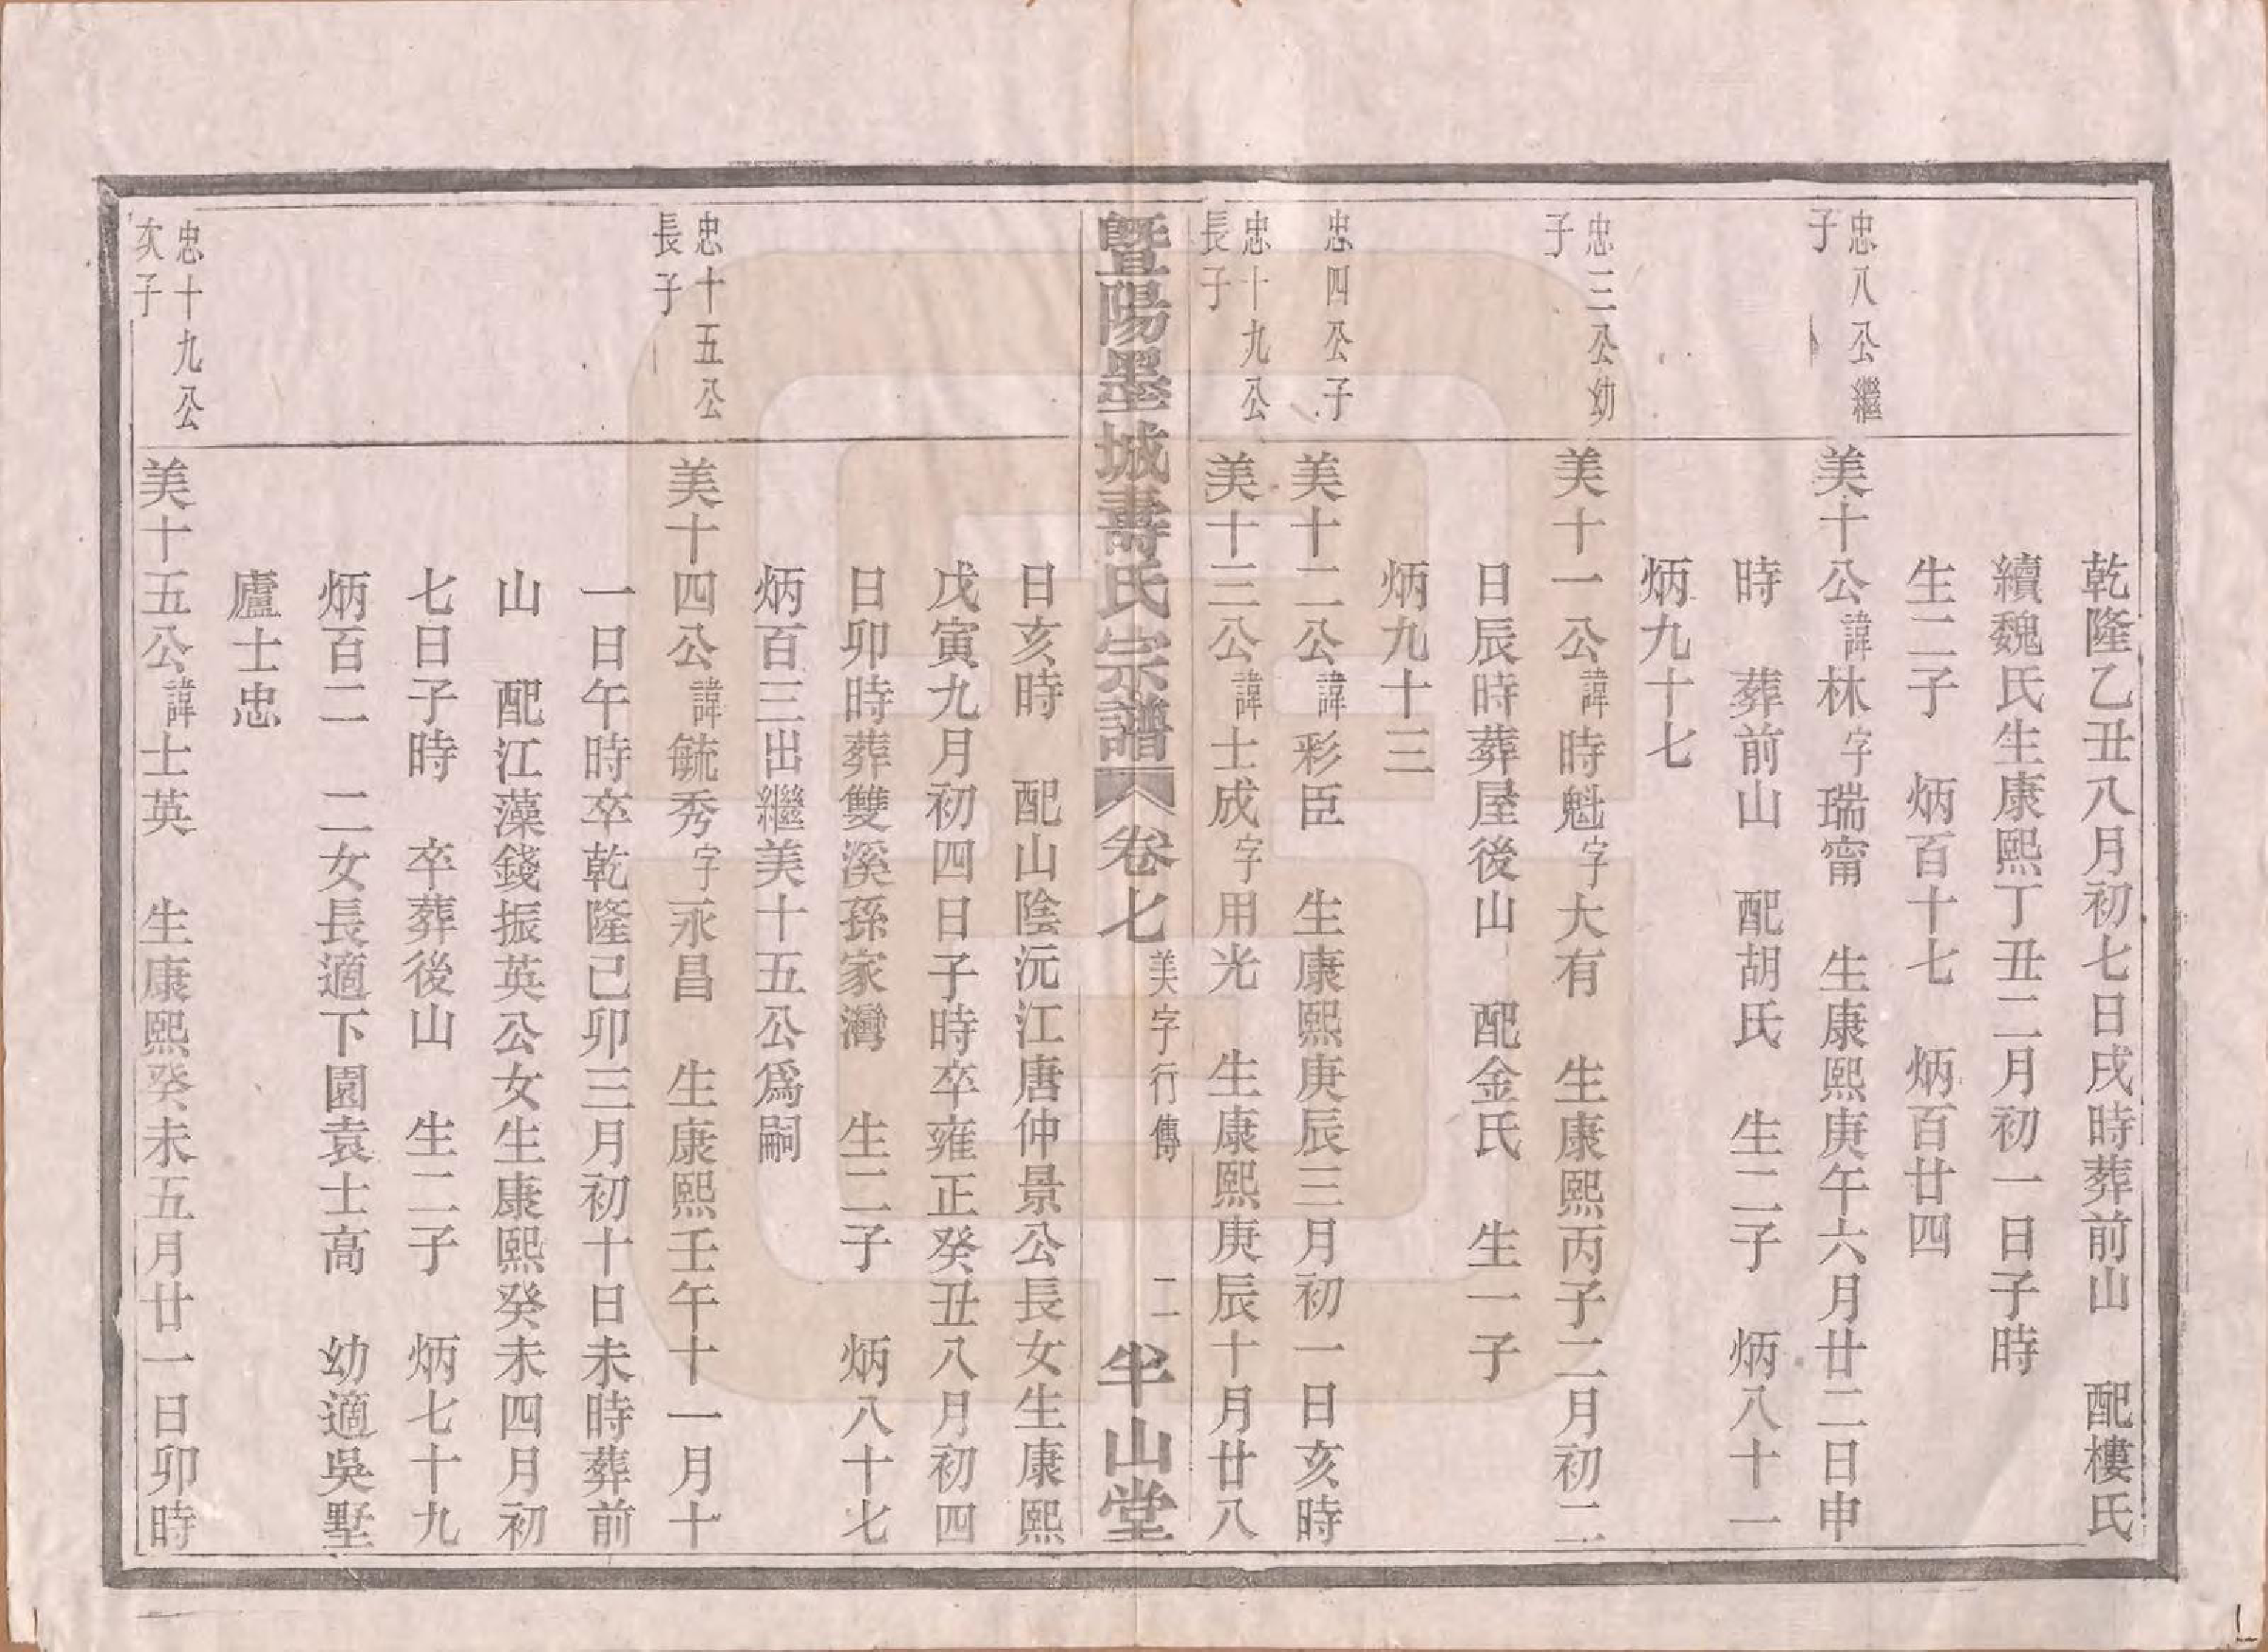 乾隆乙丑八月初七日戌時葬前山　配樓氏
續魏氏生康熙丁丑二月初一日子時
生二子　炳百十七　炳百廿四
忠八公繼
子
美十公諱林字瑞甯　生康熙庚午六月廿二日申
時　葬前山　配胡氏　生二子　炳八十一
炳九十七
忠三公幼
子
美十一公諱時魁字大有　生康熙丙子二月初二
日辰時葬屋後山　配金氏　生一子
炳九十三
忠四公子
美十二公諱彩臣　生康熙庚辰三月初一日亥時
忠十九公
長子
美十三公諱士成字用光　生康熙庚辰十月廿八
暨陽墨城壽氏宗譜　卷七　美字行傳　二　半山堂
日亥時　配山陰沅江唐仲景公長女生康熙
戊寅九月初四日子時卒雍正癸丑八月初四
日卯時葬雙溪孫家灣　生二子　炳八十七
炳百三出繼美十五公爲嗣
忠十五公
長子
美十四公諱毓秀字永昌　生康熙壬午十一月十
一日午時卒乾隆己卯三月初十日未時葬前
山　配江藻錢振英公女生康熙癸未四月初
七日子時　卒葬後山　生二子　炳七十九
炳百二　二女長適下園袁士高　幼適吳墅
廬士忠
忠十九公
次子
美十五公諱士英　生康熙癸未五月廿一日卯時